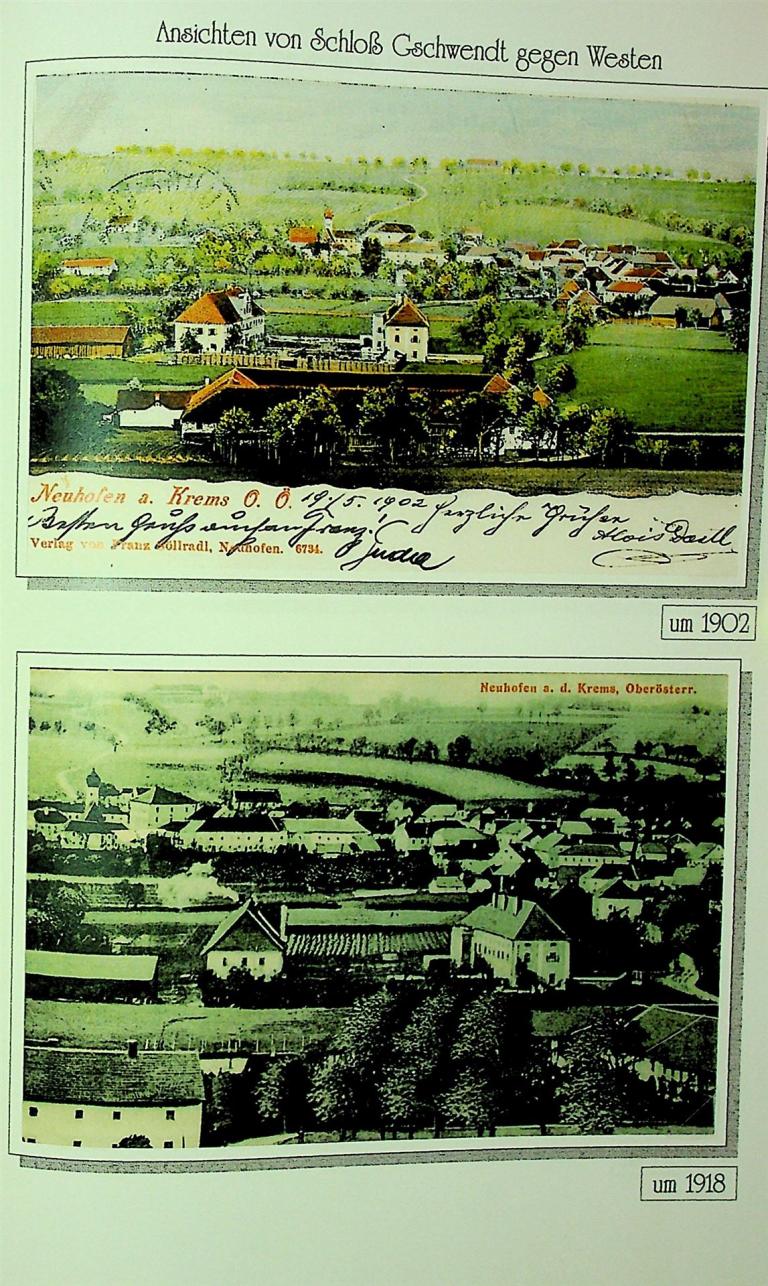 Ansichten von Schloß Gschwendt gegen Westen
Neuhofen a. Krems O. Ö. 19./5. 1902 Herzliche Grüße
Besten Gruß auch an Franz!
Alois
Verlag von Franz Söllradl, Neuhofen. 6734.
um 1902
Neuhofen a. d. Krems, Oberösterr.
um 1918